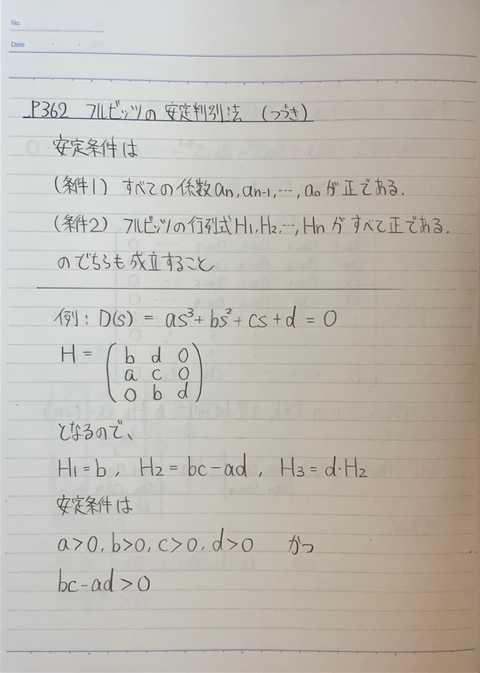 No.
Date
P362 フルビッツの安定判別法 (つづき)
安定条件は
(条件1) すべての係数an, an-1, …, a0 が正である.
(条件2) フルビッツの行列式H1, H2, …, Hn がすべて正である.
のどちらも成立すること
例: D(s) = as³+bs²+cs+d = 0
H = ( b d 0
a c 0
0 b d )
となるので、
H1=b, H2=bc-ad, H3=d·H2
安定条件は
a>0, b>0, c>0, d>0 かつ
bc-ad>0